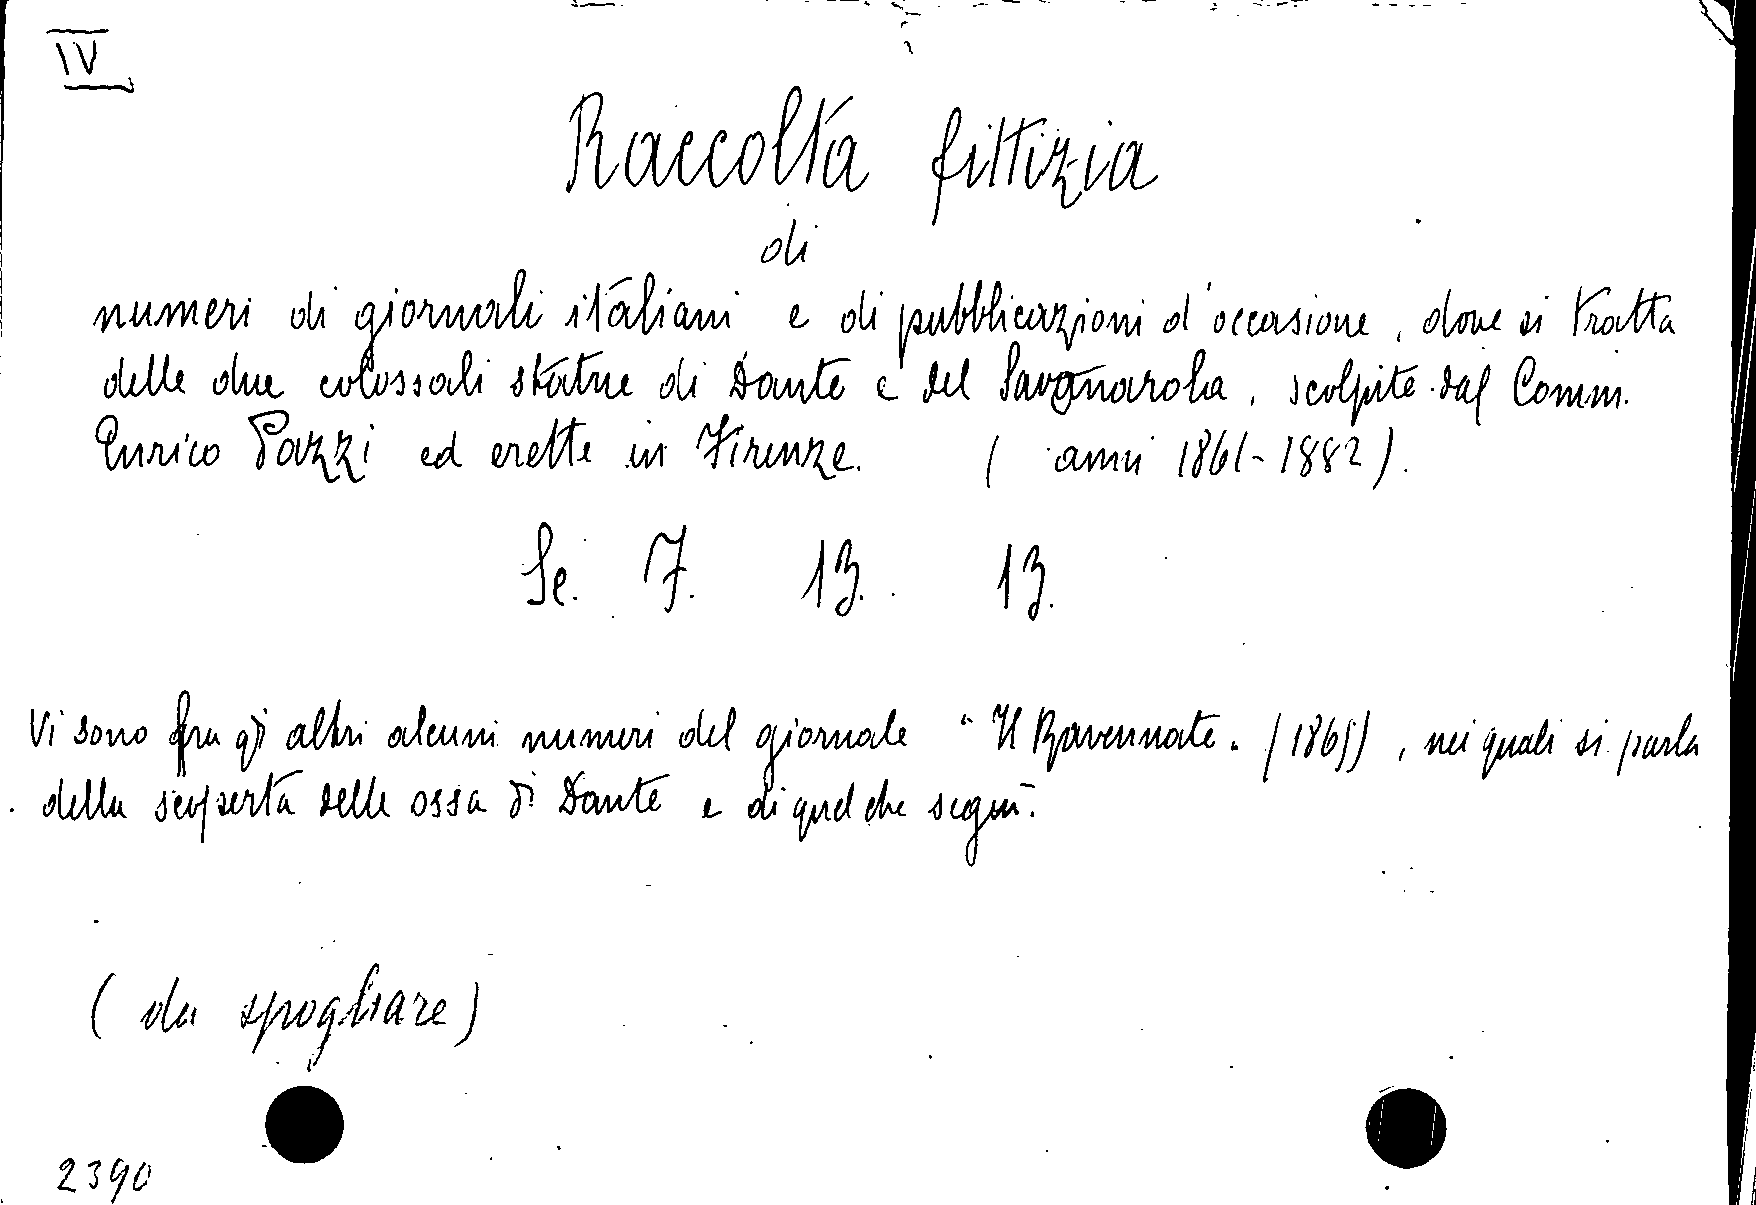 IV
Raccolta fittizia
di
numeri di giornali italiani e di pubblicazioni d'occasione, dove si tratta
delle due colossali statue di Dante e del Savonarola, scolpite dal Comm.
Enrico Pazzi ed erette in Firenze. ( anni 1861-1882).
Se. 7. 13. 13.
Vi sono fra gli altri alcuni numeri del giornale "Il Ravennate" (1865), nei quali si parla
della scoperta delle ossa di Dante e di quel che seguì.
( da spogliare)
2390